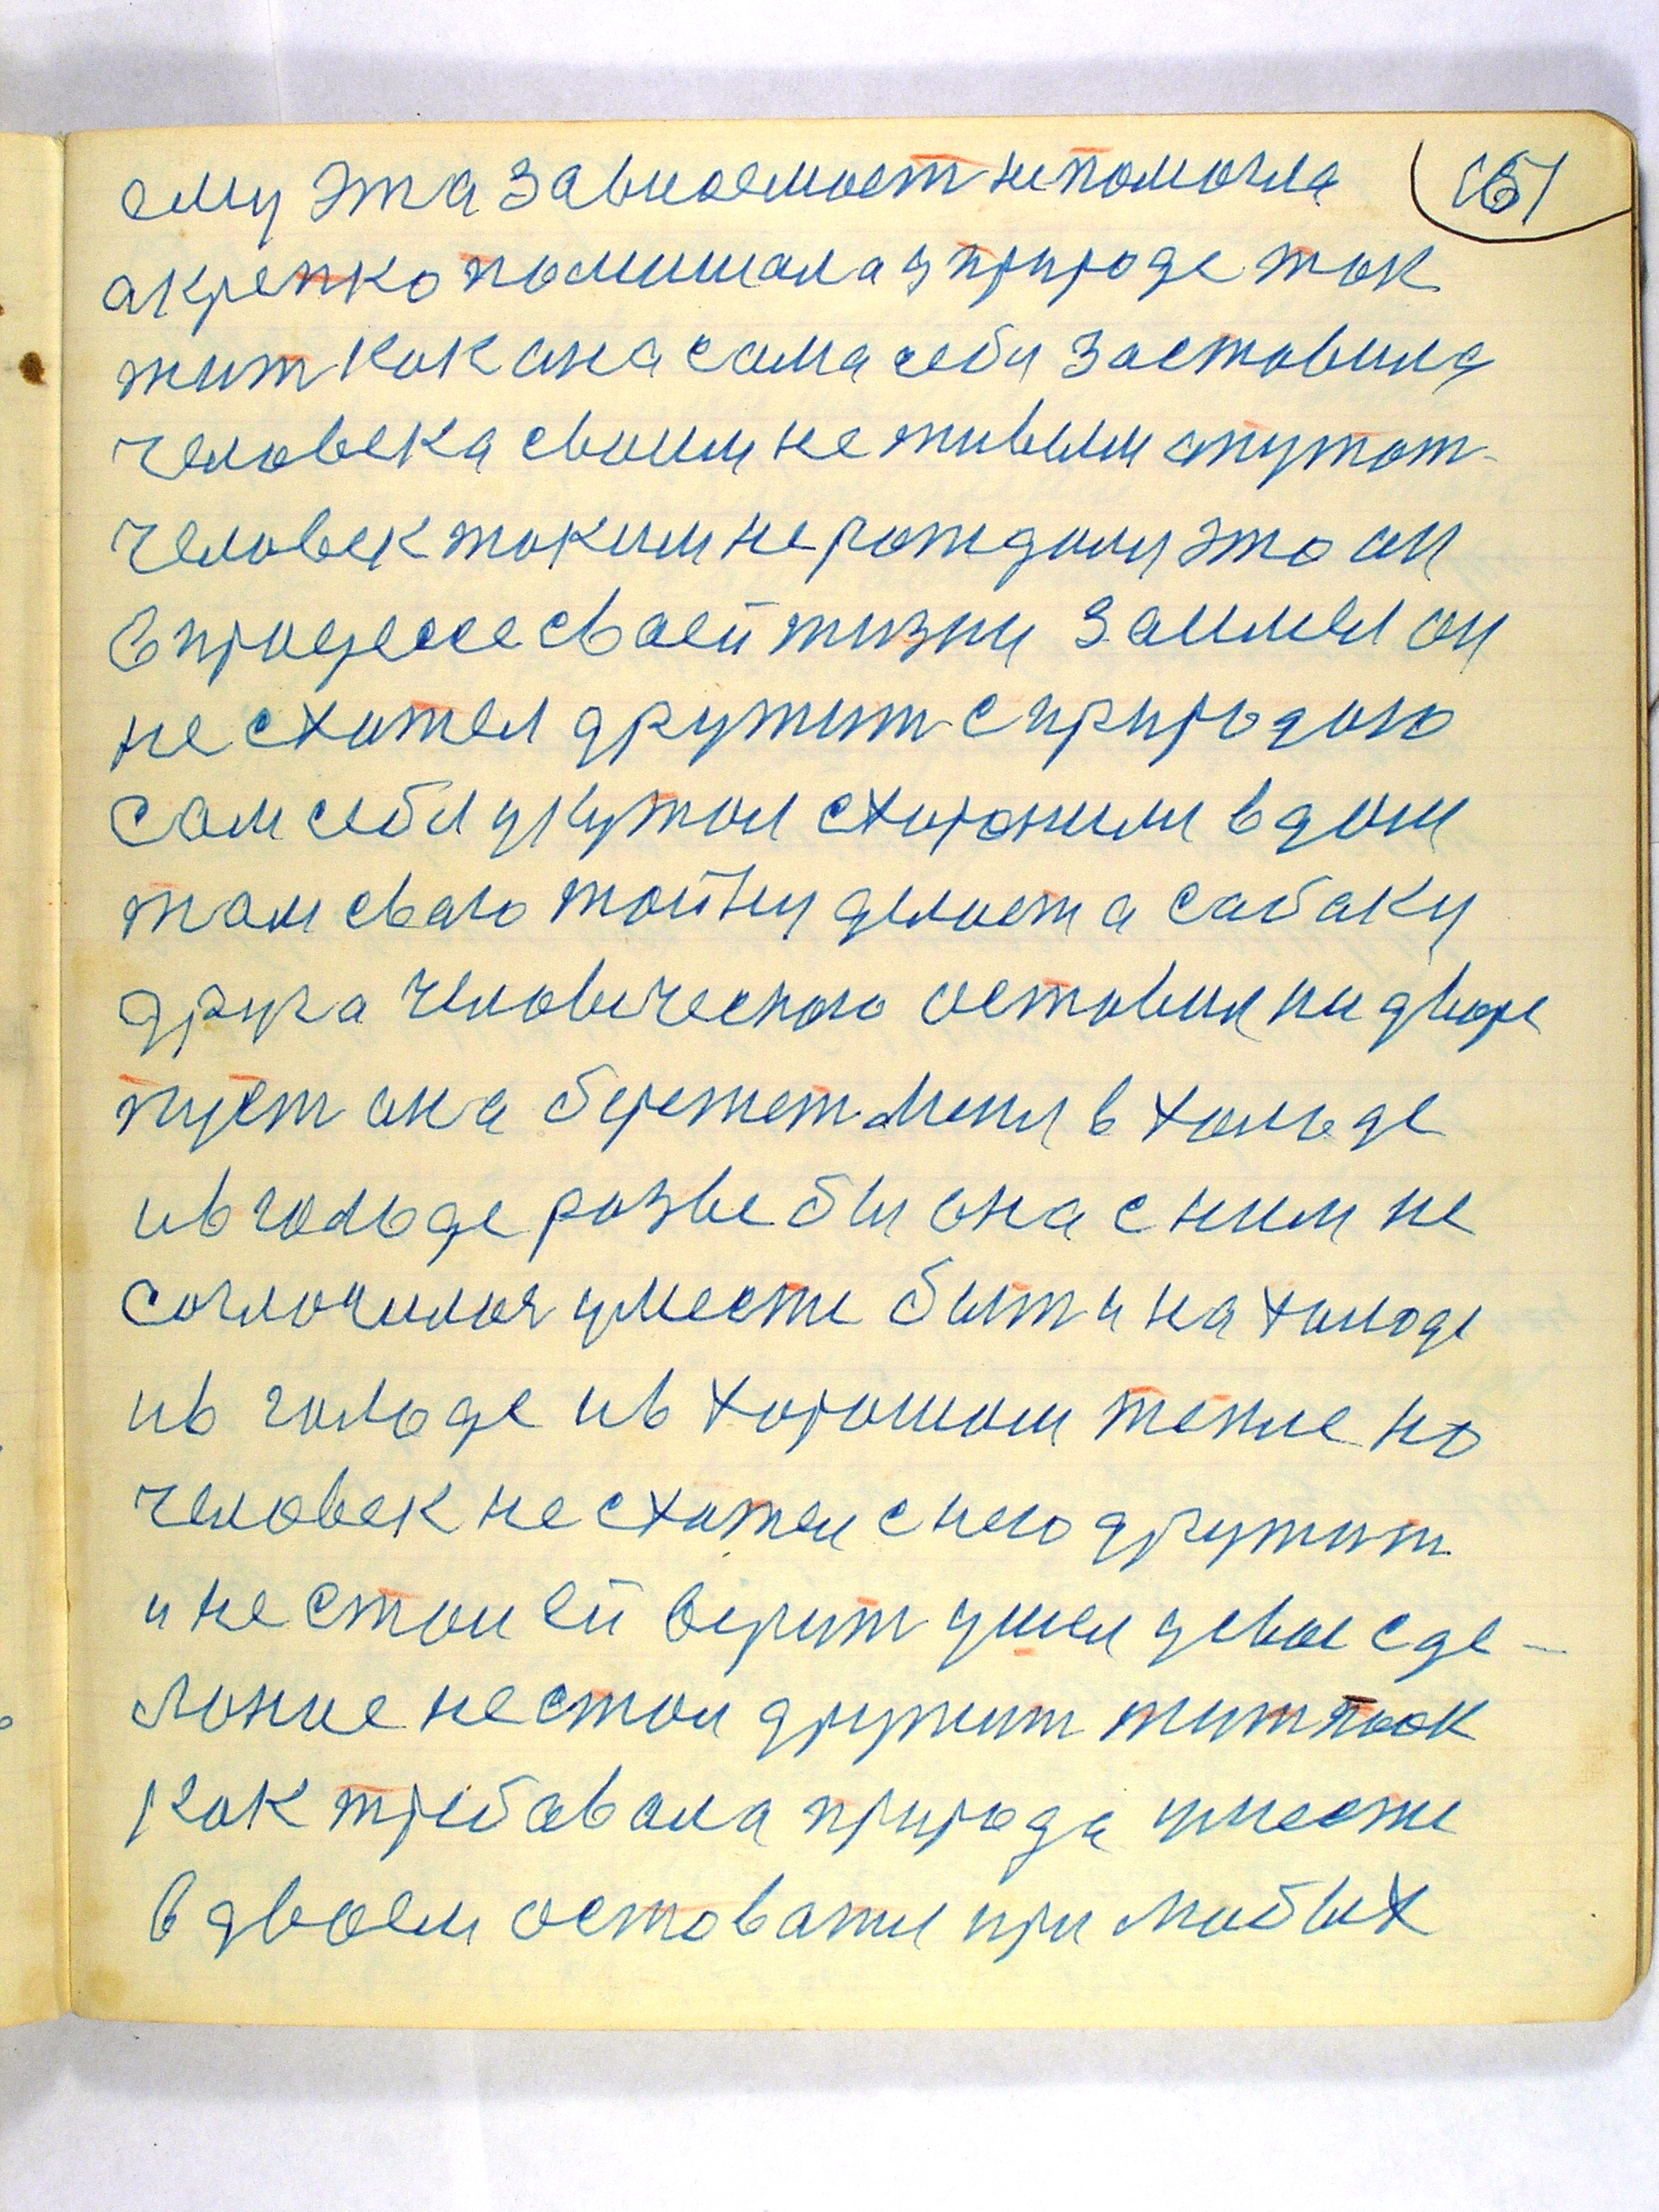 ему эта зависемост непомогла
акрепко помишала уприроде так
жит как ана сама себя заставила
человека своим не живым апутат
человек таким не рождали это он
в процессе сваей жизни заимел он
не схател дружит с природаю
сам себя укутал схаронили в дом
там сваю тайну делает а сабаку
друга человическаю оставил на дворе
пуст ана бережет меня в холоде
ив голоде разве бы она с ним не
согласилася умести быт и на холоде
ив голоде ив харошом тепле но
человек не схател с нею дружит
и не стал ей верит ушел у свае сде-
лание не стал дружит жит так
как требавала природа умести
в двоем оставатся при любых